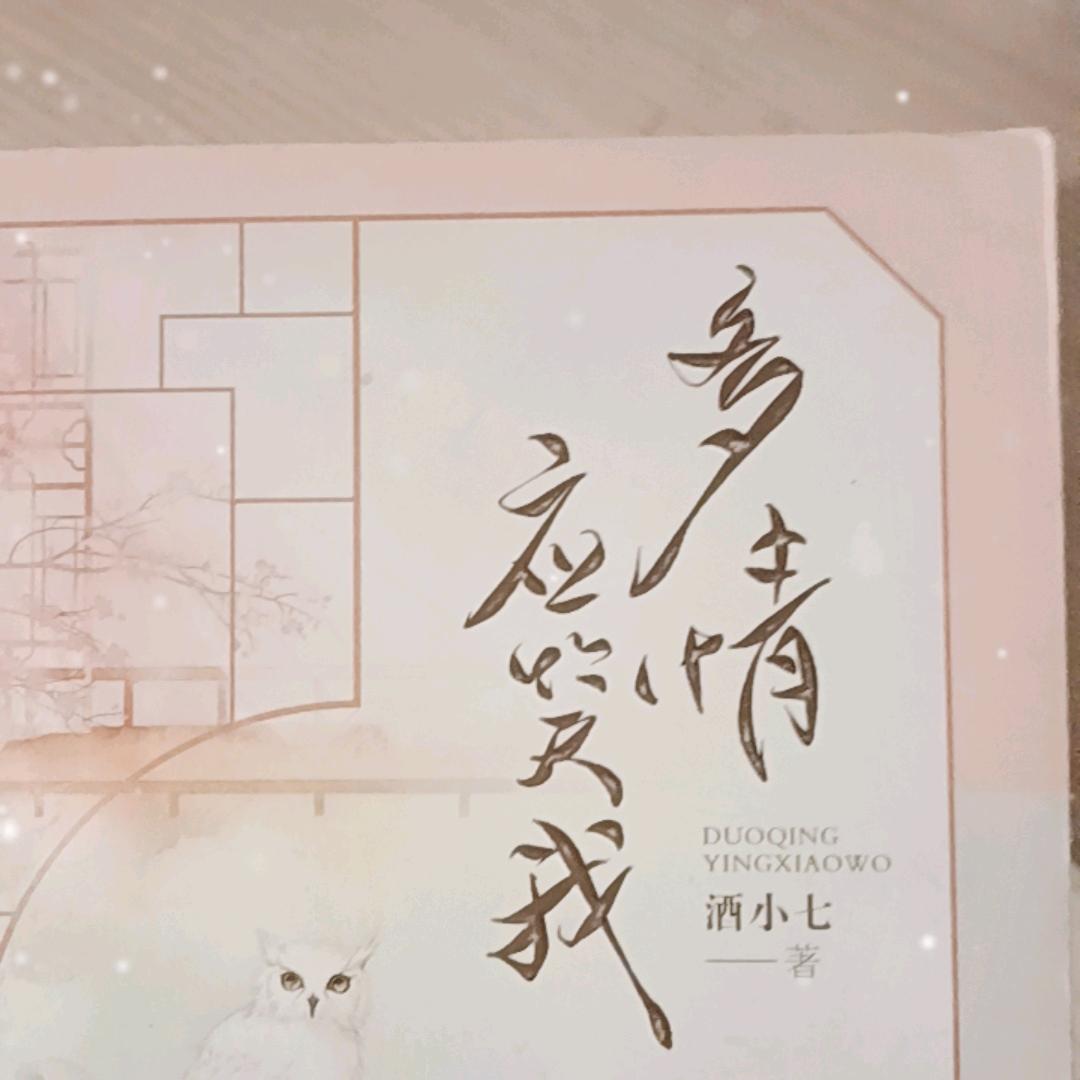 多情
应笑我
DUOQING
YINGXIAOWO
酒小七
——著